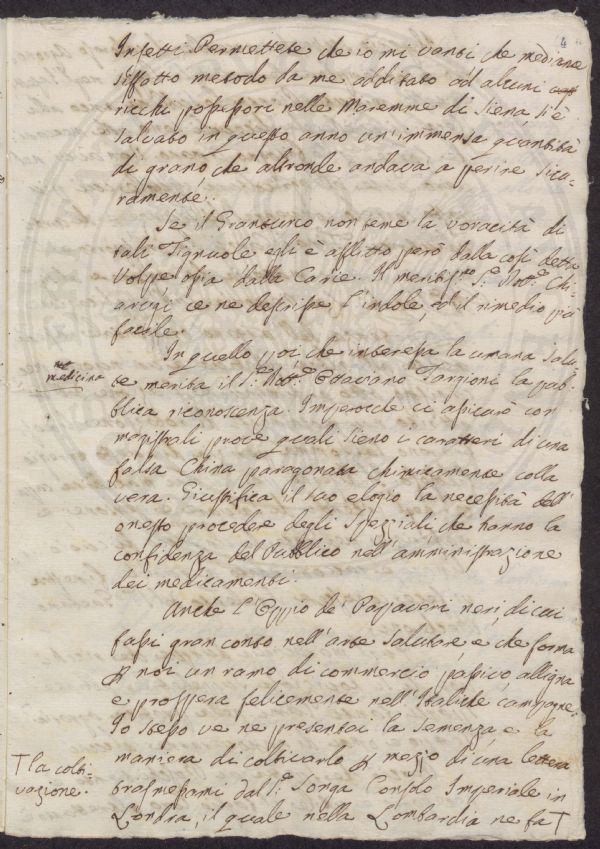 4
Insetti Permettete che io mi vanti che mediante
siffatto metodo da me additato ad alcuni
ricchi possessori nelle Maremme di Siena si è
salvato in questo anno un'immensa quantità
di grano che altronde andava a perire sicu-
ramente.
Se il Granturco non teme la voracità di
tali Tignuole egli è afflitto però dalla così detta
Volpe ossia dalla Carie. Il meritis.mo S.r Dott.e Chi-
arugi ce ne descrisse l'indole, ed il rimedio più
facile.
In quello poi che interessa la umana salu-
medicina
te merita il S.r Dott.e Ottaviano Targioni la pub-
blica riconoscenza. Imperocchè ci assicurò con
magistrali prove quali sieno i caratteri di una
falsa China paragonata chimicamente colla
vera. Giustifica il suo elogio la necessità dell'
onesto procedere degli Speziali, che hanno la
confidenza del Pubblico nell'amministrazione
dei medicamenti.
Anche l'Oppio de' Papaveri neri, di cui
fassi gran conto nell'arte salutare, e che forma
p noi un ramo di commercio passivo alligna
e prospera felicemente nell'Italiche campagne.
Io stesso ve ne presentai la semenza, e la
maniera di coltivarlo p mezzo di una lettera
trasmessami dal S.r Songa Consolo Imperiale in
Londra, il quale nella Lombardia ne fa T
T la colti-
vazione.